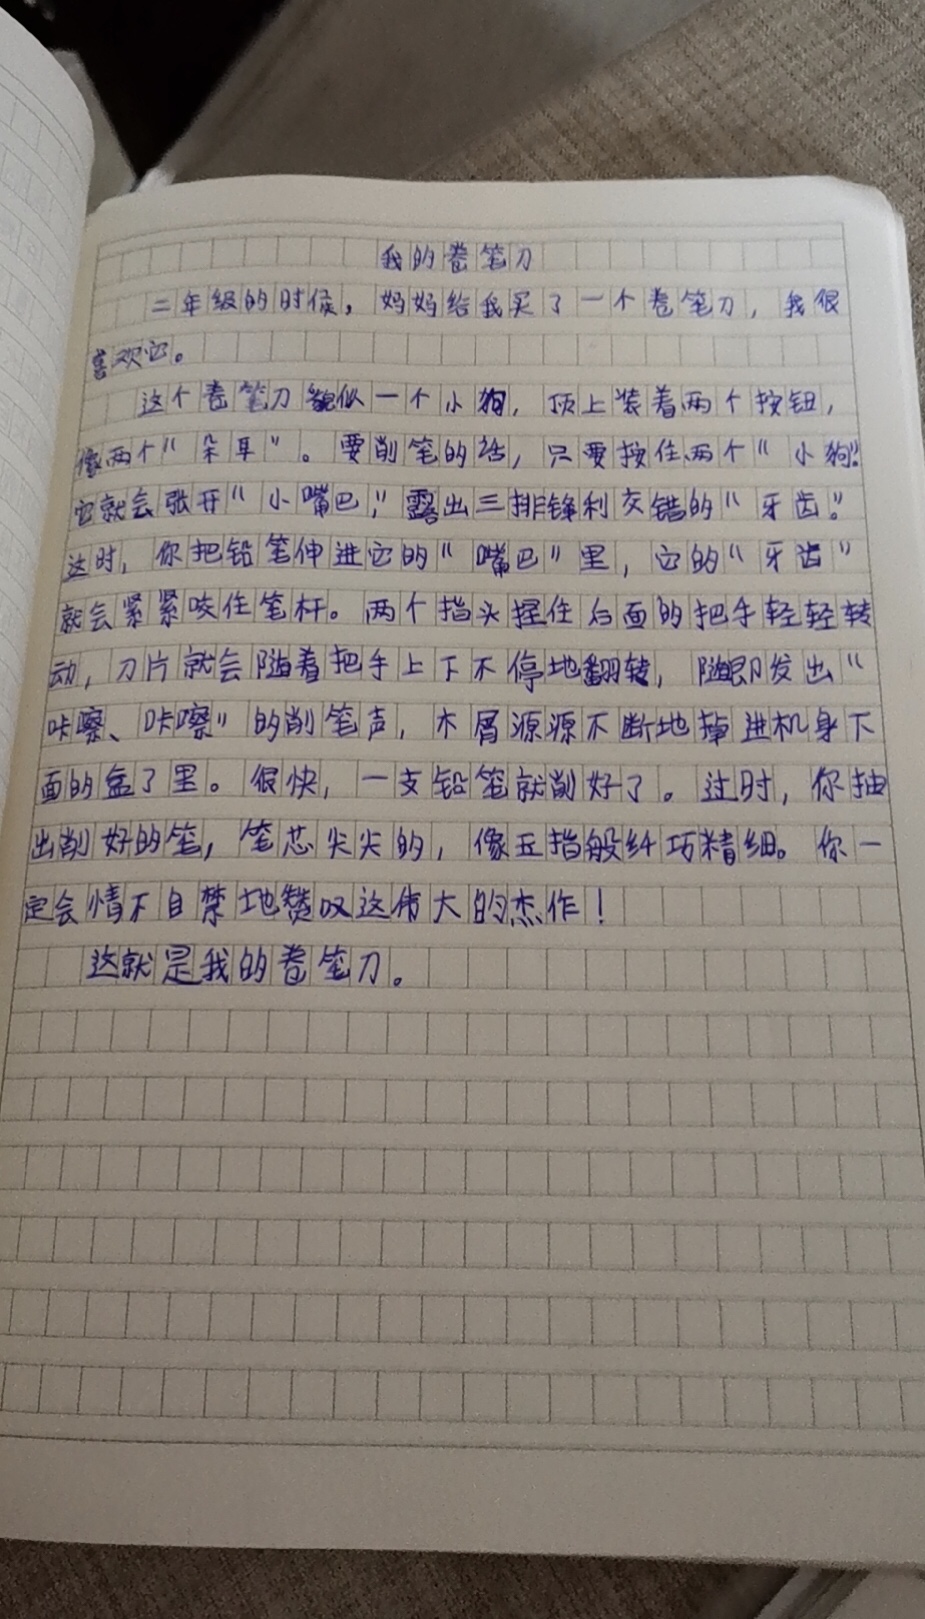 我的卷笔刀
二年级的时候，妈妈给我买了一个卷笔刀，我很
喜欢它。
这个卷笔刀貌似一个小狗，顶上装着两个按钮，
像两个“朵耳”。要削笔的话，只要按住两个“小狗”
它就会张开“小嘴巴，”露出三排锋利交错的“牙齿。”
这时，你把铅笔伸进它的“嘴巴”里，它的“牙齿”
就会紧紧咬住笔杆。两个指头捏住后面的把手轻轻转
动，刀片就会随着把手上下不停地翻转，随即发出“
咔嚓、咔嚓”的削笔声，木屑源源不断地掉进机身下
面的盒了里。很快，一支铅笔就削好了。过时，你抽
出削好的笔，笔芯尖尖的，像五指般纤巧精细。你一
定会情不自禁地赞叹这伟大的杰作！
这就是我的卷笔刀。